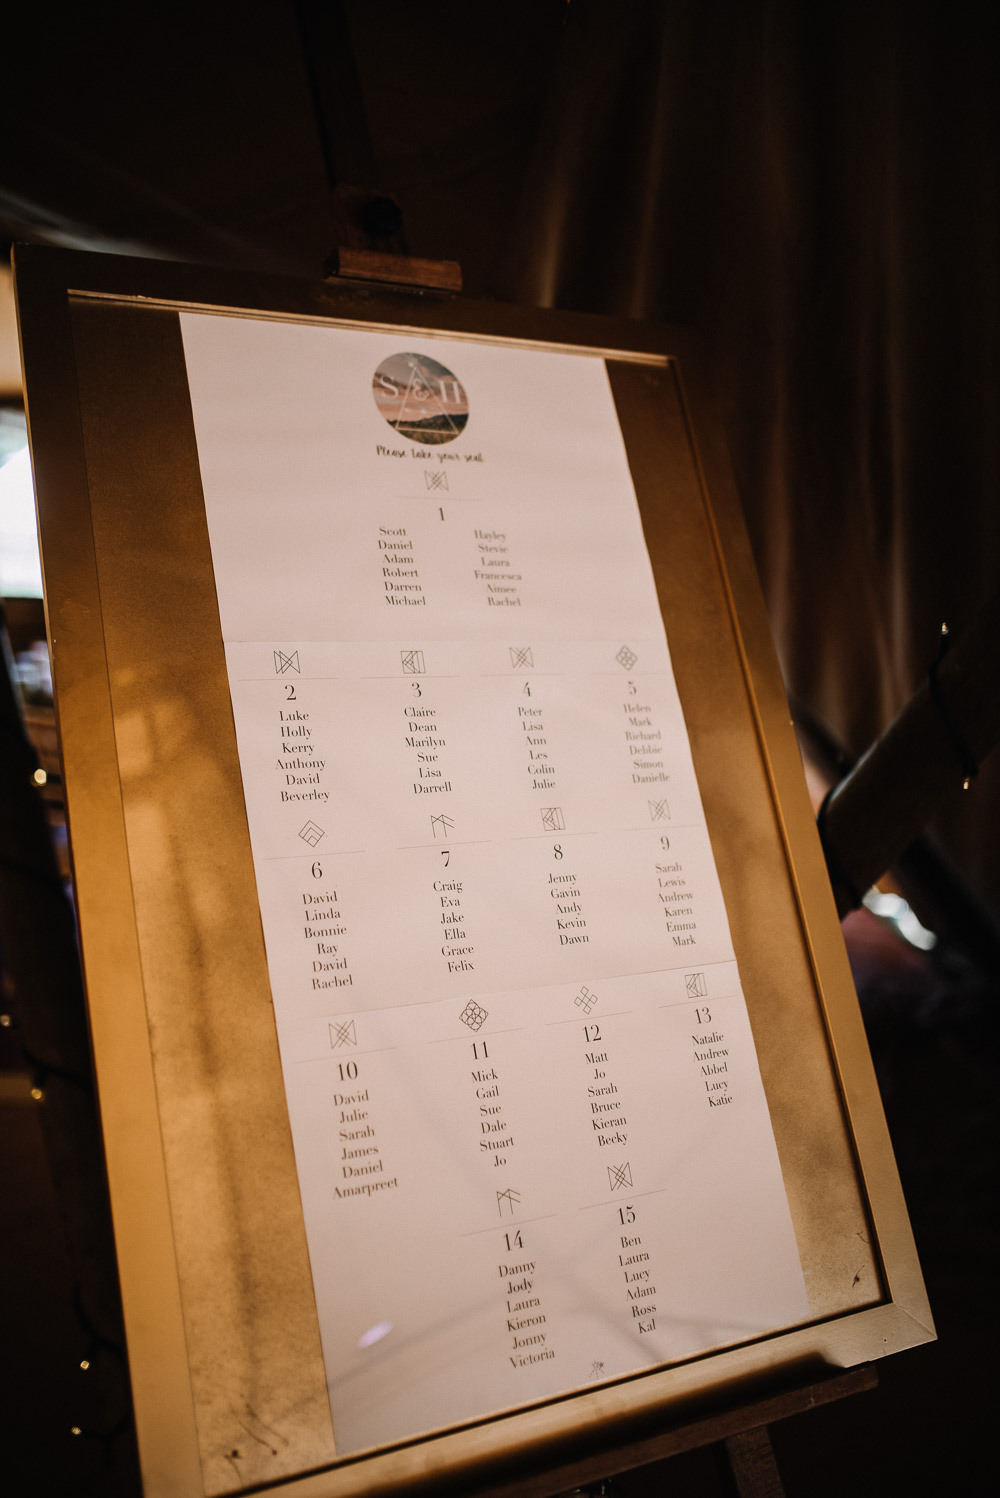 S & H
Please take your seat
1
Scott
Daniel
Adam
Robert
Darren
Michael
Hayley
Stevie
Laura
Francesca
Aimee
Rachel
2
Luke
Holly
Kerry
Anthony
David
Beverley
3
Claire
Dean
Marilyn
Sue
Lisa
Darrell
4
Peter
Lisa
Ann
Les
Colin
Julie
5
Helen
Mark
Richard
Debbie
Simon
Danielle
6
David
Linda
Bonnie
Ray
David
Rachel
7
Craig
Eva
Jake
Ella
Grace
Felix
8
Jenny
Gavin
Andy
Kevin
Dawn
9
Sarah
Lewis
Andrew
Karen
Emma
Mark
10
David
Julie
Sarah
James
Daniel
Amarpreet
11
Mick
Gail
Sue
Dale
Stuart
Jo
12
Matt
Jo
Sarah
Bruce
Kieran
Becky
13
Natalie
Andrew
Abbel
Lucy
Katie
14
Danny
Jody
Laura
Kieron
Jonny
Victoria
15
Ben
Laura
Lucy
Adam
Ross
Kal